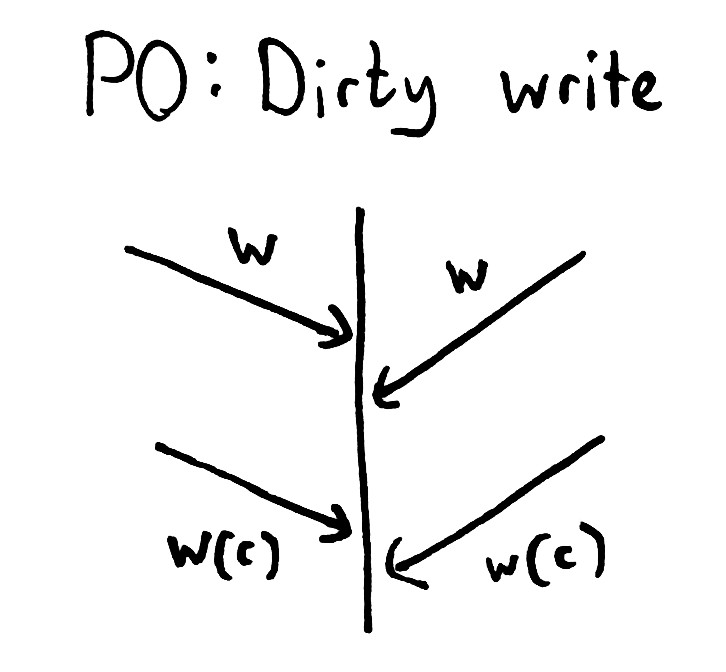 P0: Dirty write
W
W
W(c)
w(c)